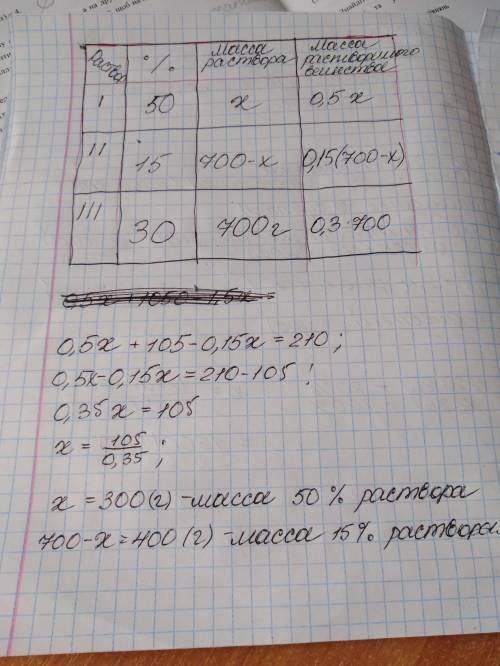 Раствор % Масса раствора Масса растворимого вещества
I 50 x 0,5x
II 15 700-x 0,15(700-x)
III 30 700г 0,3·700
0,5x + 105 - 0,15x = 210;
0,5x - 0,15x = 210 - 105;
0,35x = 105
x = 105/0,35;
x = 300(г) - масса 50% раствора
700-x = 400(г) - масса 15% раствора.